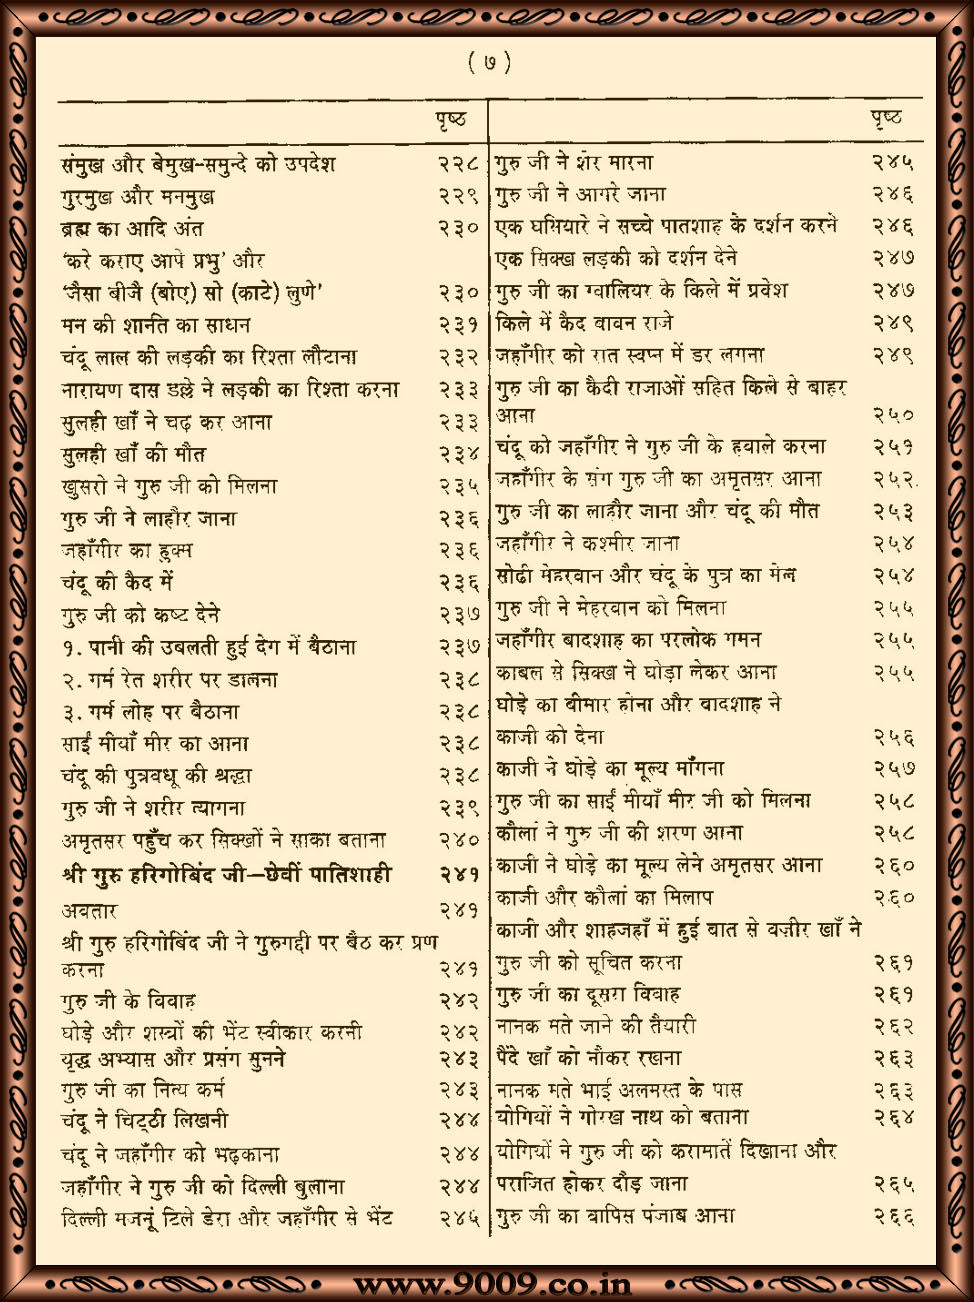 ( ७ )
पृष्ठ
संमुख और बेमुख-समुन्दे को उपदेश २२८
गुरमुख और मनमुख २२९
ब्रह्म का आदि अंत २३०
‘करे कराए आपे प्रभु’ और
‘जैसा बीजै (बोए) सो (काटे) लुणे’ २३०
मन की शान्ति का साधन २३१
चंदू लाल की लड़की का रिश्ता लौटाना २३२
नारायण दास डल्ले ने लड़की का रिश्ता करना २३३
सुलही खाँ ने चढ़ कर आना २३३
सुलही खाँ की मौत २३४
खुसरो ने गुरु जी को मिलना २३५
गुरु जी ने लाहौर जाना २३६
जहाँगीर का हुक्म २३६
चंदू की कैद में २३६
गुरु जी को कष्ट देने २३७
१. पानी की उबलती हुई देग में बैठाना २३७
२. गर्म रेत शरीर पर डालना २३८
३. गर्म लोह पर बैठाना २३८
साईं मीयाँ मीर का आना २३८
चंदू की पुत्रवधू की श्रद्धा २३८
गुरु जी ने शरीर त्यागना २३९
अमृतसर पहुँच कर सिक्खों ने साका बताना २४०
श्री गुरु हरिगोबिंद जी—छेवीं पातिशाही २४१
अवतार २४१
श्री गुरु हरिगोबिंद जी ने गुरुगद्दी पर बैठ कर प्रण
करना २४१
गुरु जी के विवाह २४२
घोड़े और शस्त्रों की भेंट स्वीकार करनी २४२
युद्ध अभ्यास और प्रसंग सुनने २४३
गुरु जी का नित्य कर्म २४३
चंदू ने चिट्ठी लिखनी २४४
चंदू ने जहाँगीर को भड़काना २४४
जहाँगीर ने गुरु जी को दिल्ली बुलाना २४४
दिल्ली मजनूं टिले डेरा और जहाँगीर से भेंट २४५
पृष्ठ
गुरु जी ने शेर मारना २४५
गुरु जी ने आगरे जाना २४६
एक घसियारे ने सच्चे पातशाह के दर्शन करने २४६
एक सिक्ख लड़की को दर्शन देने २४७
गुरु जी का ग्वालियर के किले में प्रवेश २४७
किले में कैद बावन राजे २४९
जहाँगीर को रात स्वप्न में डर लगना २४९
गुरु जी का कैदी राजाओं सहित किले से बाहर
आना २५०
चंदू को जहाँगीर ने गुरु जी के हवाले करना २५१
जहाँगीर के संग गुरु जी का अमृतसर आना २५२
गुरु जी का लाहौर जाना और चंदू की मौत २५३
जहाँगीर ने कश्मीर जाना २५४
सोढी मेहरबान और चंदू के पुत्र का मेल २५४
गुरु जी ने मेहरबान को मिलना २५५
जहाँगीर बादशाह का परलोक गमन २५५
काबल से सिक्ख ने घोड़ा लेकर आना २५५
घोड़े का बीमार होना और बादशाह ने
काजी को देना २५६
काजी ने घोड़े का मूल्य माँगना २५७
गुरु जी का साईं मीयाँ मीर जी को मिलना २५८
कौलां ने गुरु जी की शरण आना २५८
काजी ने घोड़े का मूल्य लेने अमृतसर आना २६०
काजी और कौलां का मिलाप २६०
काजी और शाहजहाँ में हुई बात से वज़ीर खाँ ने
गुरु जी को सूचित करना २६१
गुरु जी का दूसरा विवाह २६१
नानक मते जाने की तैयारी २६२
पैंदे खाँ को नौकर रखना २६३
नानक मते भाई अलमस्त के पास २६३
योगियों ने गोरख नाथ को बताना २६४
योगियों ने गुरु जी को करामातें दिखाना और
पराजित होकर दौड़ जाना २६५
गुरु जी का वापिस पंजाब आना २६६
www.9009.co.in